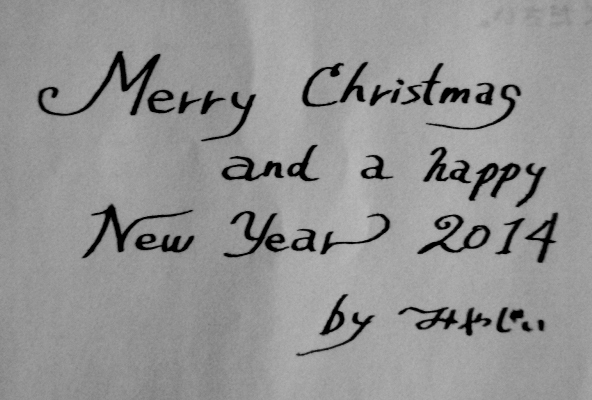 Merry Christmas
and a happy
New Year 2014
by みやじい